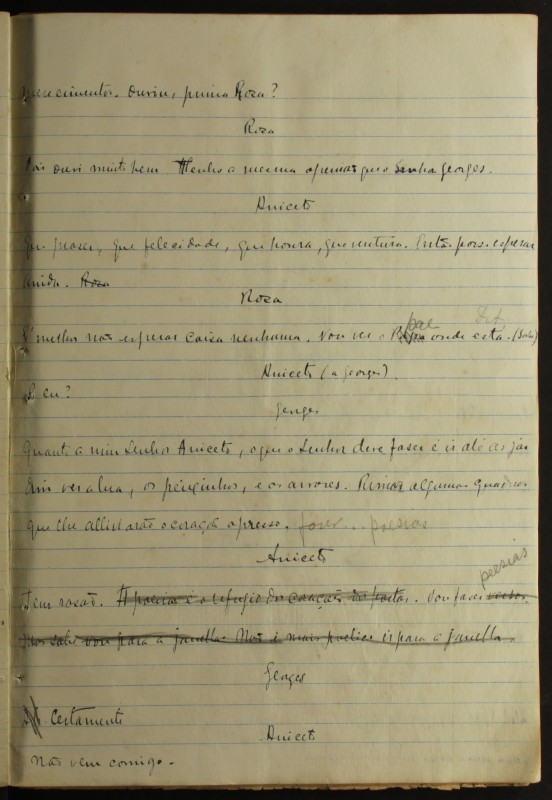 merecimentos. Ouviu, prima Rosa?
Rosa
Pois ouvi muito bem. Tenho a mesma opinião que o Senhor Georges.
Aniceto
Que prazer, que felecidade, que honra, que ventura. Então posso esperar
ainda. Rosa
Rosa
É melhor não esperar coisa nenhuma. Vou ver o pae onde está. (Sahe)
Aniceto (a Georges).
E eu?
Georges
Quanto a mim Senhor Aniceto, o que o Senhor deve faser é ir até ao jar
dim ver a lua, os peixinhos, e as arvores. Rimar algumas quadras
que lhe alliviarão o coração oppresso. fazer .. poesias
Aniceto
poesias
Tem rasão. A poesia é o refugio do coração dos poetas. Vou faser versos.
vou para a janella. Não é mais poetico ir para a janella.
Georges
Certamente
Aniceto
Não vem comigo.